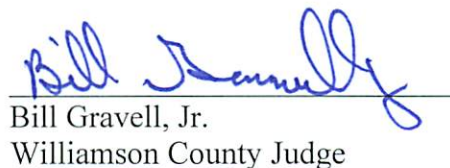 Bill
Bill Gravell, Jr.
Williamson County Judge